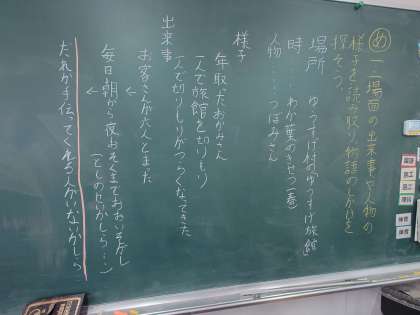 め 一・二場面の出来事や人物の
様子を読み取り、物語のしかけを
探そう。
場所 ゆうすげ村のゆうすげ旅館
時……わか葉のきせつ(春)
人物……つぼみさん
様子
年取ったおかみさん
一人で旅館を切りもり
一人で切りもりがつらくなってきた
出来事
お客さんが六人とまった
↓
毎日朝から夜おそくまでおおいそがし
(としのせいかしら…)
↓
だれか手伝ってくれる人がいないかしら